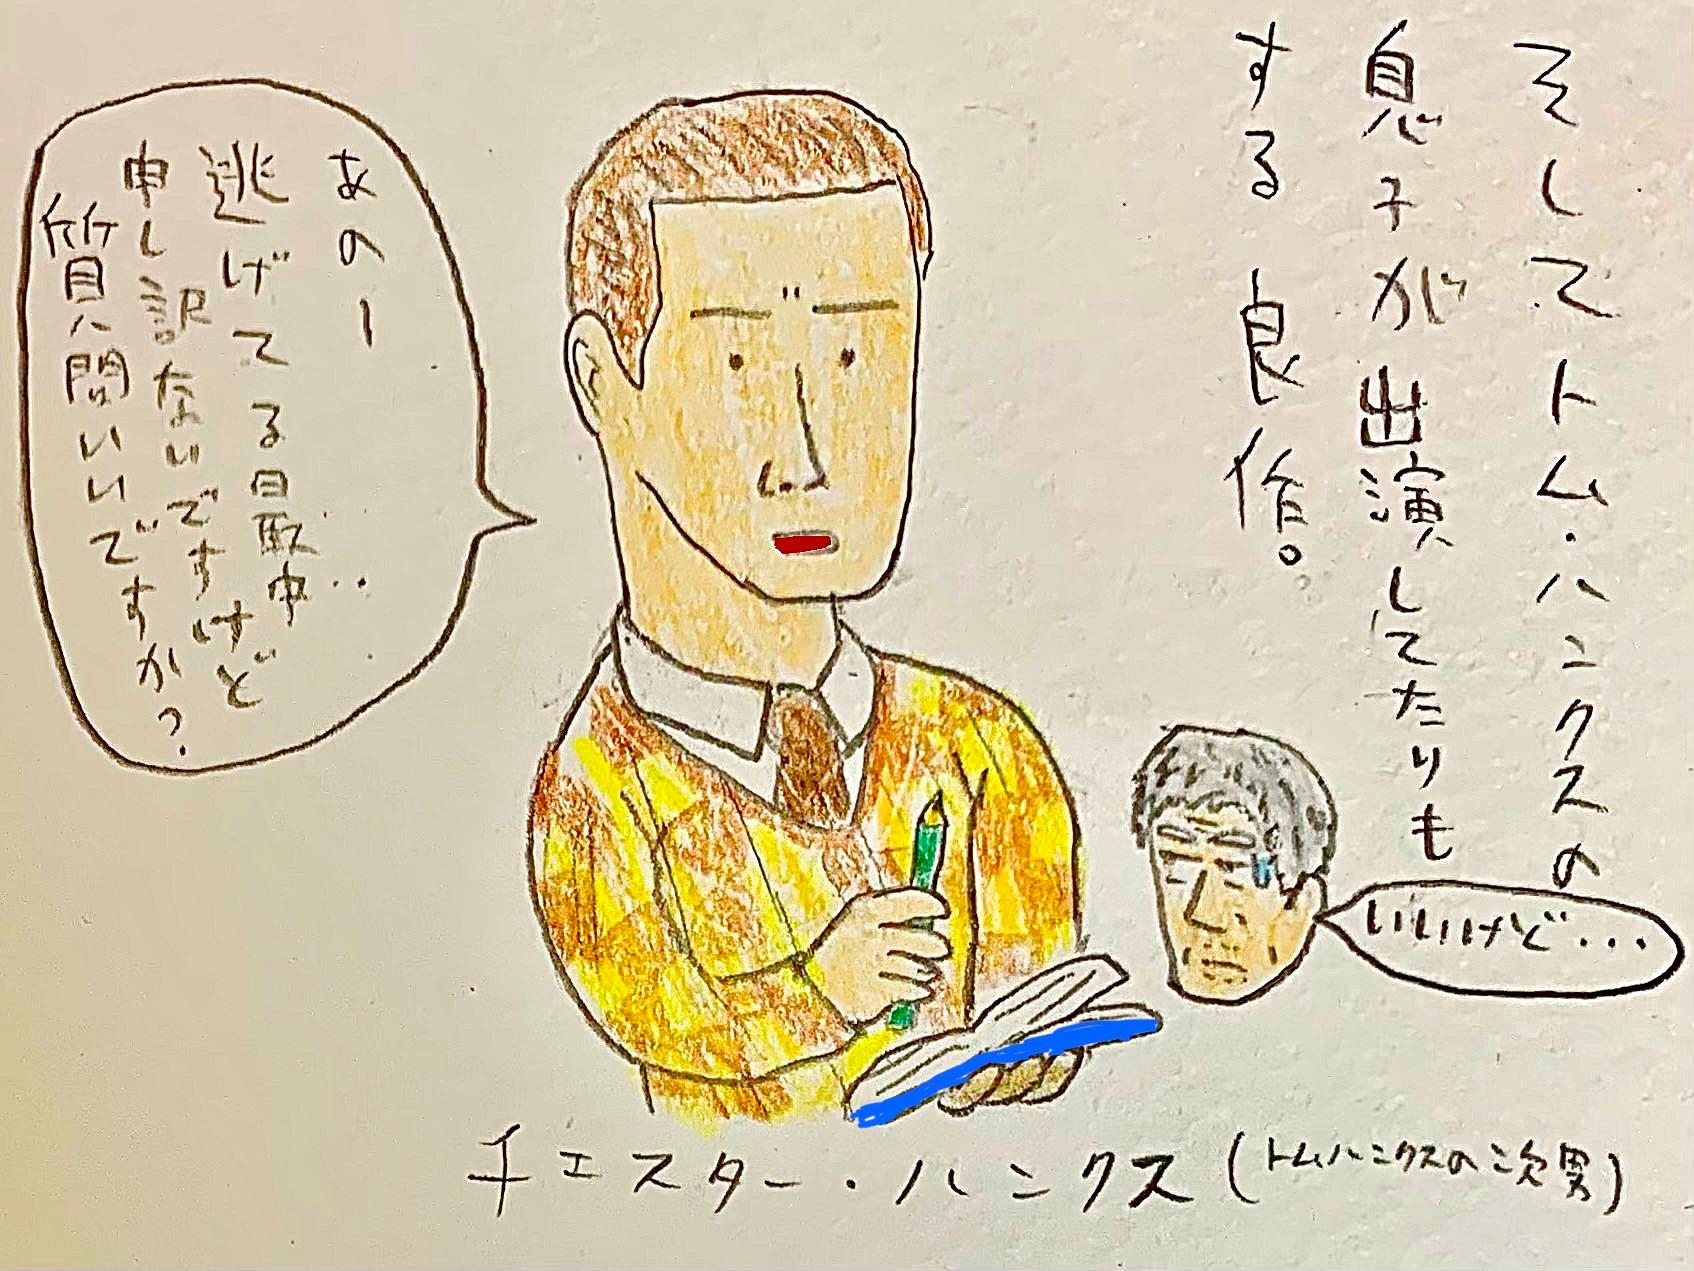 そしてトム・ハンクスの
息子が出演してたりも
する良作。
あのー
逃げてる最中
申し訳ないですけど
質問いいですか?
いいけど・・・
チェスター・ハンクス(トムハンクスの次男)